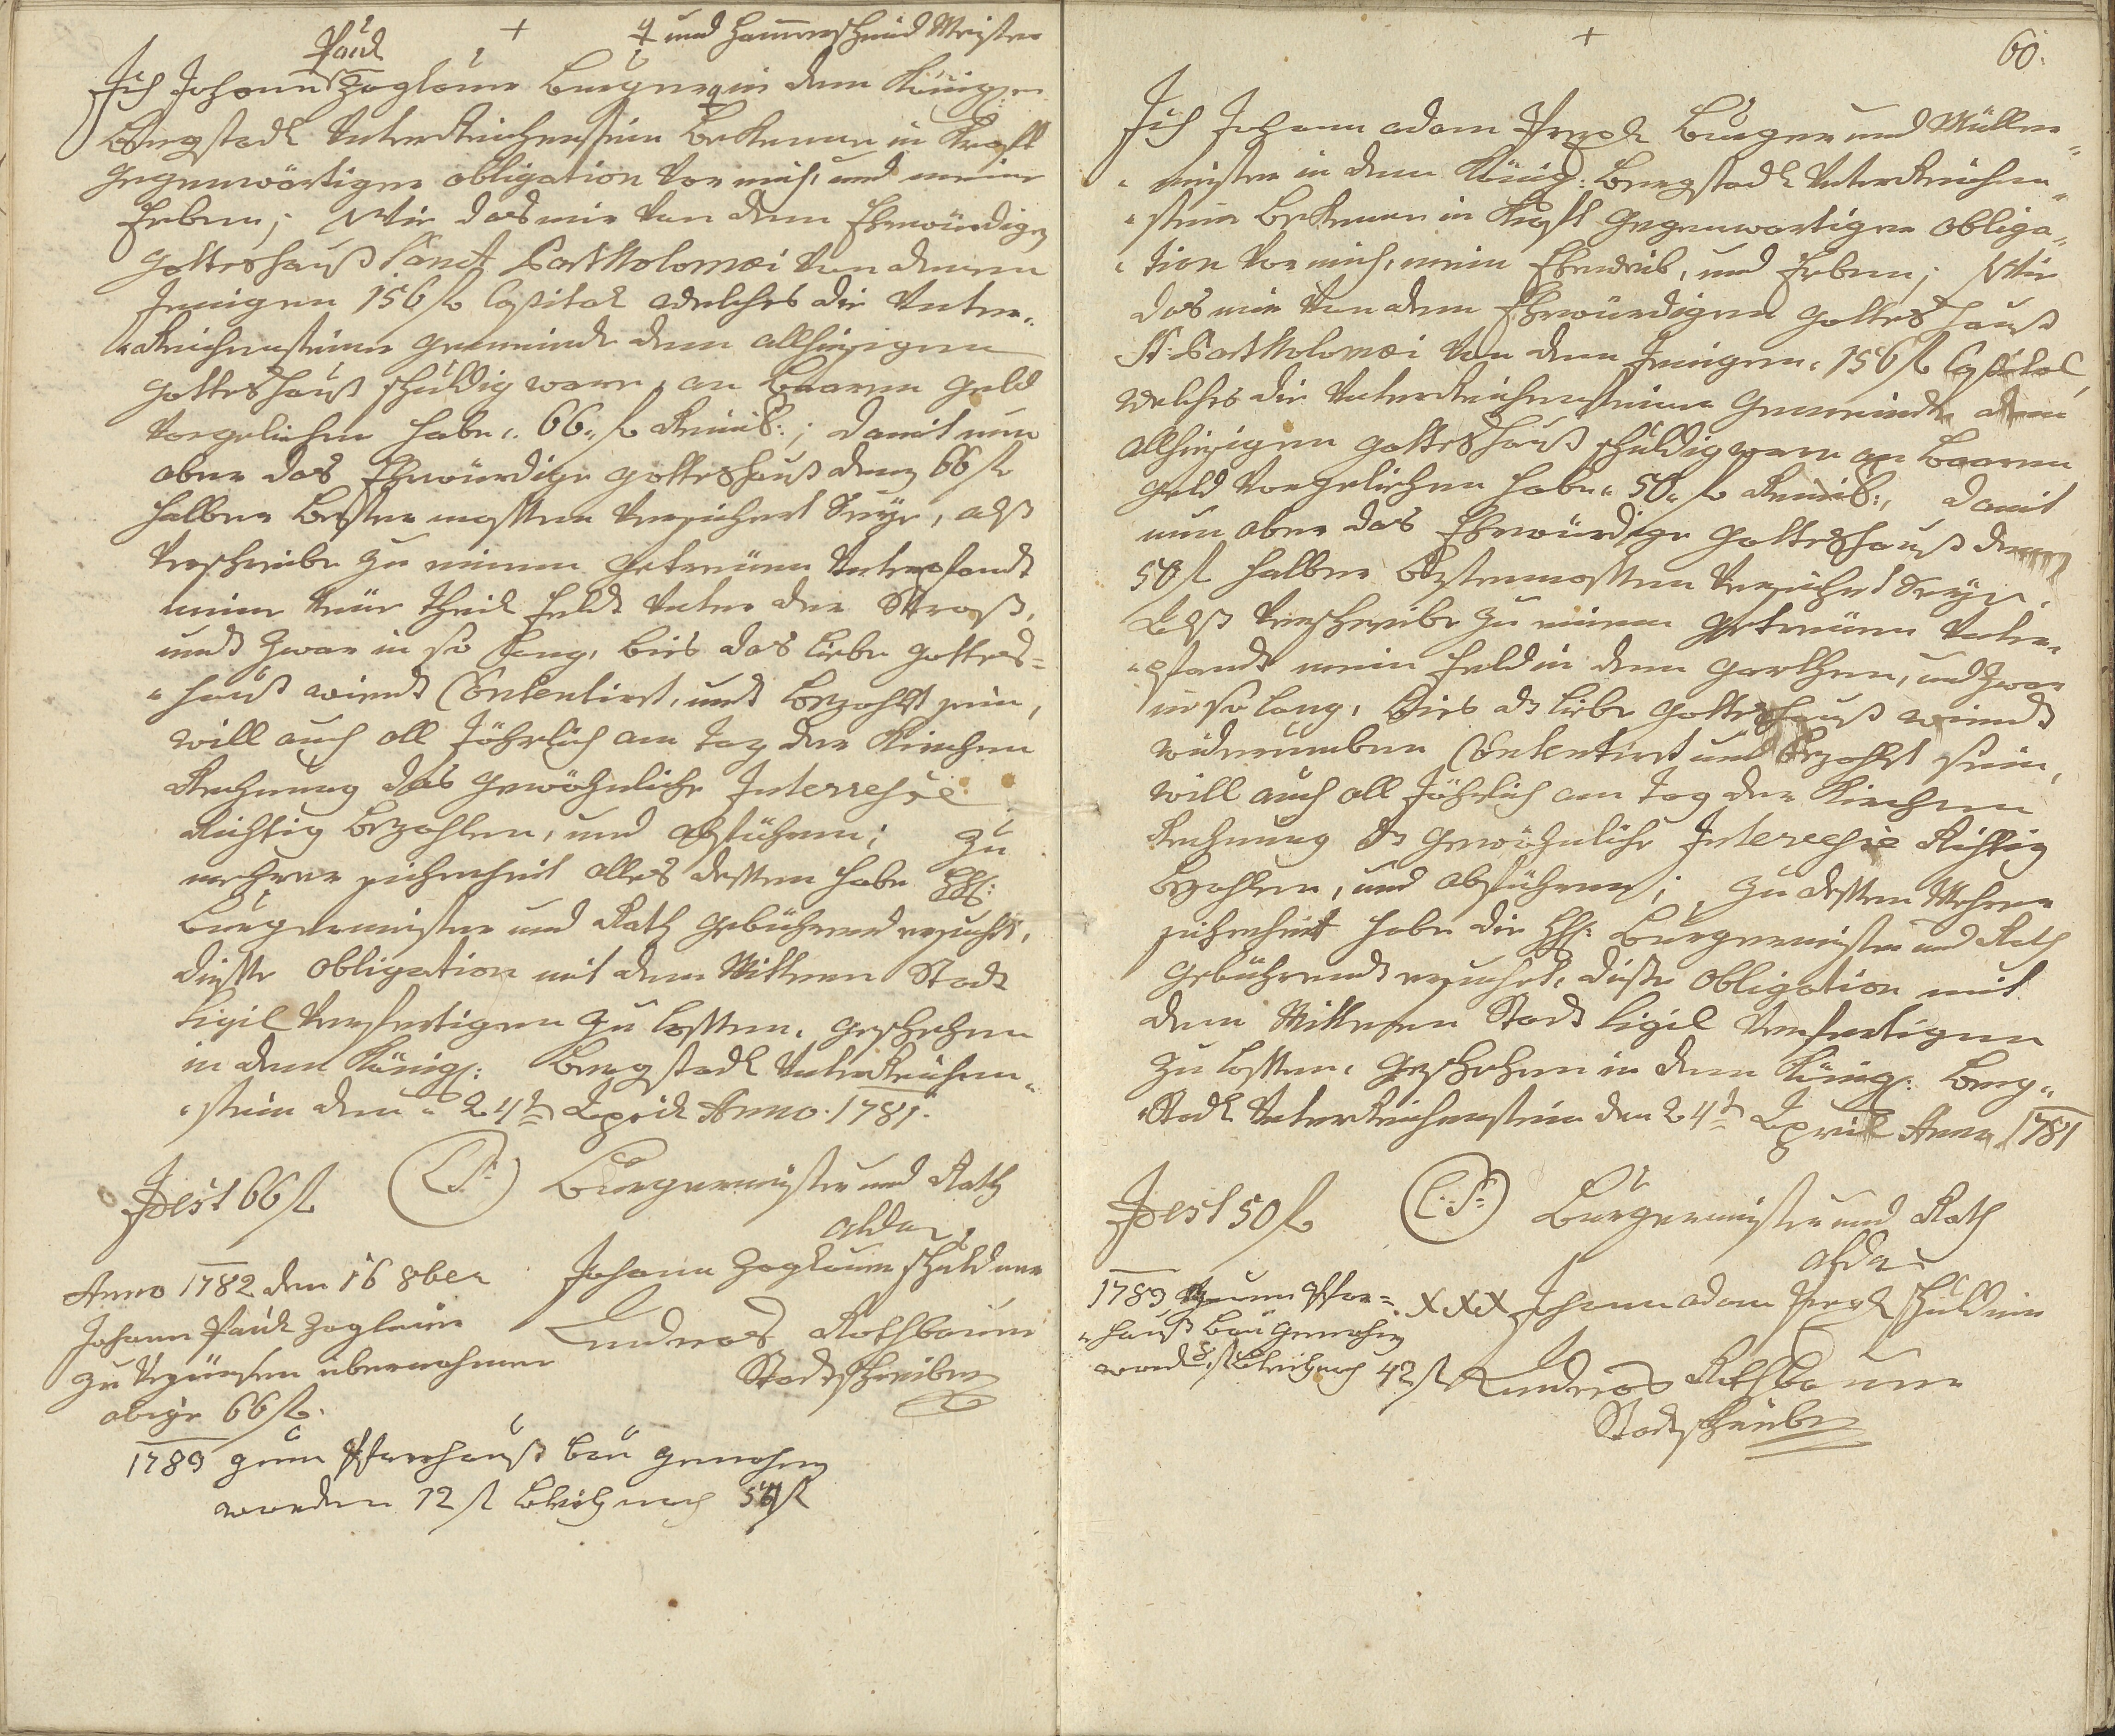 +
ꝗ und Hammerschmid Meister
Paul
Ich Johann Zoglauer Burger in dem Königl:
Bergstadl Unterreichenstein Bekenne in Krafft
gegenwärtiger obligation vor mich, und meine
Erben; Wie das mir von dem Ehrwürdigen
gotteshauß Sanct Bartholomæi von denen
Jenigen 156 fl Capital welches die Unter-
Reichensteiner gemeinde dem allhiesigen
gotteshauß schuldig ware, an Baaren geld
vorgeliehen habe. 66. fl Reinisch:; damit nun
aber das Ehrwürdige gotteshauß deren 66 fl
halber bester massen versichert Seye, alß
verschreibe zu einem getreuen Unterpfandt
meine Theil feldt unter der Straß,
undt zwar in so lang, bies das liebe gottes=
hauß wierdt Contentirt, undt bezahlt sein,
will auch all Jährlich am Tag der Kirchen
Rechnung das gewöhnliche Interresse
Richtig bezahlen, und abführen; Zu
mehrer sicherheit alles dessen habe HH:
Burgermeister und Rath gebührend ersucht,
diesse obligation mit dem Mittern Stadt
Sigil verfertigen zu lassen. geschehen
in dem Königl: Bergstadl Unterreichen-
stein den 24t April Anno 1781.
Id est 66 fl
(L.S.)
Burgermeister und Rath
alda
Johann Zoglauer schuldner
Andreas Rothbauer
Stadtschreiber
Anno 1782 den 16 8ber
Johann Paul Zoglauer
zu verzünsen übernohmen
obige 66 fl.
1789 zum Pfarrhauß bau genohmen
worden 12 fl bleibt noch 54 fl
+
60.
Ich Johann adam Burger und Müller
meister in dem König: Bergstadl Unterreichen
stein Bekenne in Krafft gegenwartiger obliga-
tion vor mich, mein Eheweib, und Erben; Wie
das mir von dem Ehrwürdigen gotteshauß
St: Bartholomæi von denen Jenigen 156 fl Capital,
welches die Unterreichensteiner gemeinde dem
allhiesigen gotteshauß schuldig ware an Baaren
geld vorgeliehen habe 50. fl Reinisch:, damit
nun aber das Ehrwürdige gotteshauß deren
50 fl halber bestermassen versichert Seye,
Alß verschreibe zu einem getreuen Unter-
pfandt mein feld in dem garthen, und zwar
in so lang, bies ds liebe gotteshauß wierdt
widerumben Contentirt und bezahlt sein,
will auch all Jährlich am Tag der Kirchen
Rechnung ds gewöhnliche Interesse Richtig
bezahlen, und abführen; Zu dessen Mehrer
sicherheit habe die HH: Burgermeister und Rath
gebührendt ersuchet, disse obligation mit
dem Mittern Stadt Sigil verfertigen
zu lassen. Geschehen in dem Königl: Berg-
Stadl Unterreichenstein den 24t April Anno 1781
Id est 50 fl
(L.S.)
Burgermeister und Rath
alda
XXX Johann adam schuldner
Andreas Rothbauer
Stadtschreiber
1789 zum Pfar=
hauß bau genohmen
word 8 fl bleibt noch 42 fl